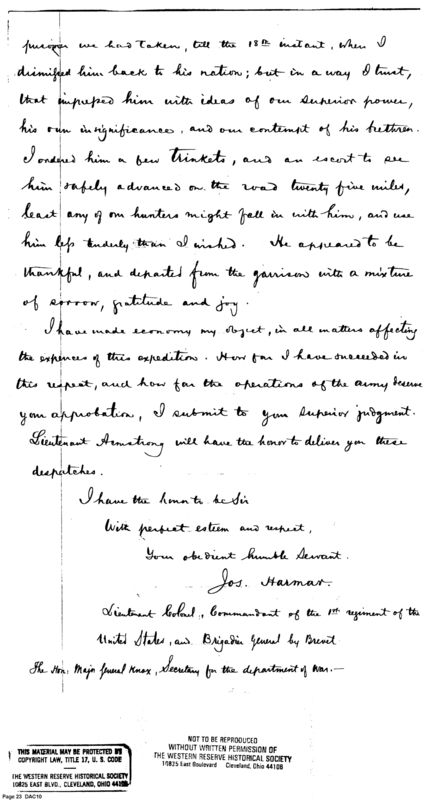 prisoner we had taken, till the 18th instant, when I
dismissed him back to his nation; but in a way I trust,
that impressed him with ideas of our superior power,
his own insignificance, and our contempt of his brethren.
I ordered him a few trinkets, and an escort to see
him safely advanced on the road twenty five miles,
least any of our hunters might fall in with him, and use
him less tenderly than I wished. He appeared to be
thankful, and departed from the garrison with a mixture
of sorrow, gratitude and joy.
I have made economy my object, in all matters affecting
the expences of this expedition. How far I have succeeded in
this respect, and how far the operations of the army deserve
your approbation, I submit to your superior judgment.
Lieutenant Armstrong will have the honor to deliver you these
despatches.
I have the honor to be Sir
With perfect esteem and respect,
Your obedient humble Servant.
Jos. Harmar.
Lieutenant Colonel, Commandant of the 1st regiment of the
United States, and Brigadier General by Brevet
The Hon. Major General Knox, Secretary for the department of War.—
THIS MATERIAL MAY BE PROTECTED BY
COPYRIGHT LAW, TITLE 17, U. S. CODE
THE WESTERN RESERVE HISTORICAL SOCIETY
10825 EAST BLVD., CLEVELAND, OHIO 44106
NOT TO BE REPRODUCED
WITHOUT WRITTEN PERMISSION OF
THE WESTERN RESERVE HISTORICAL SOCIETY
10825 East Boulevard Cleveland, Ohio 44106
Page 23 DAC10